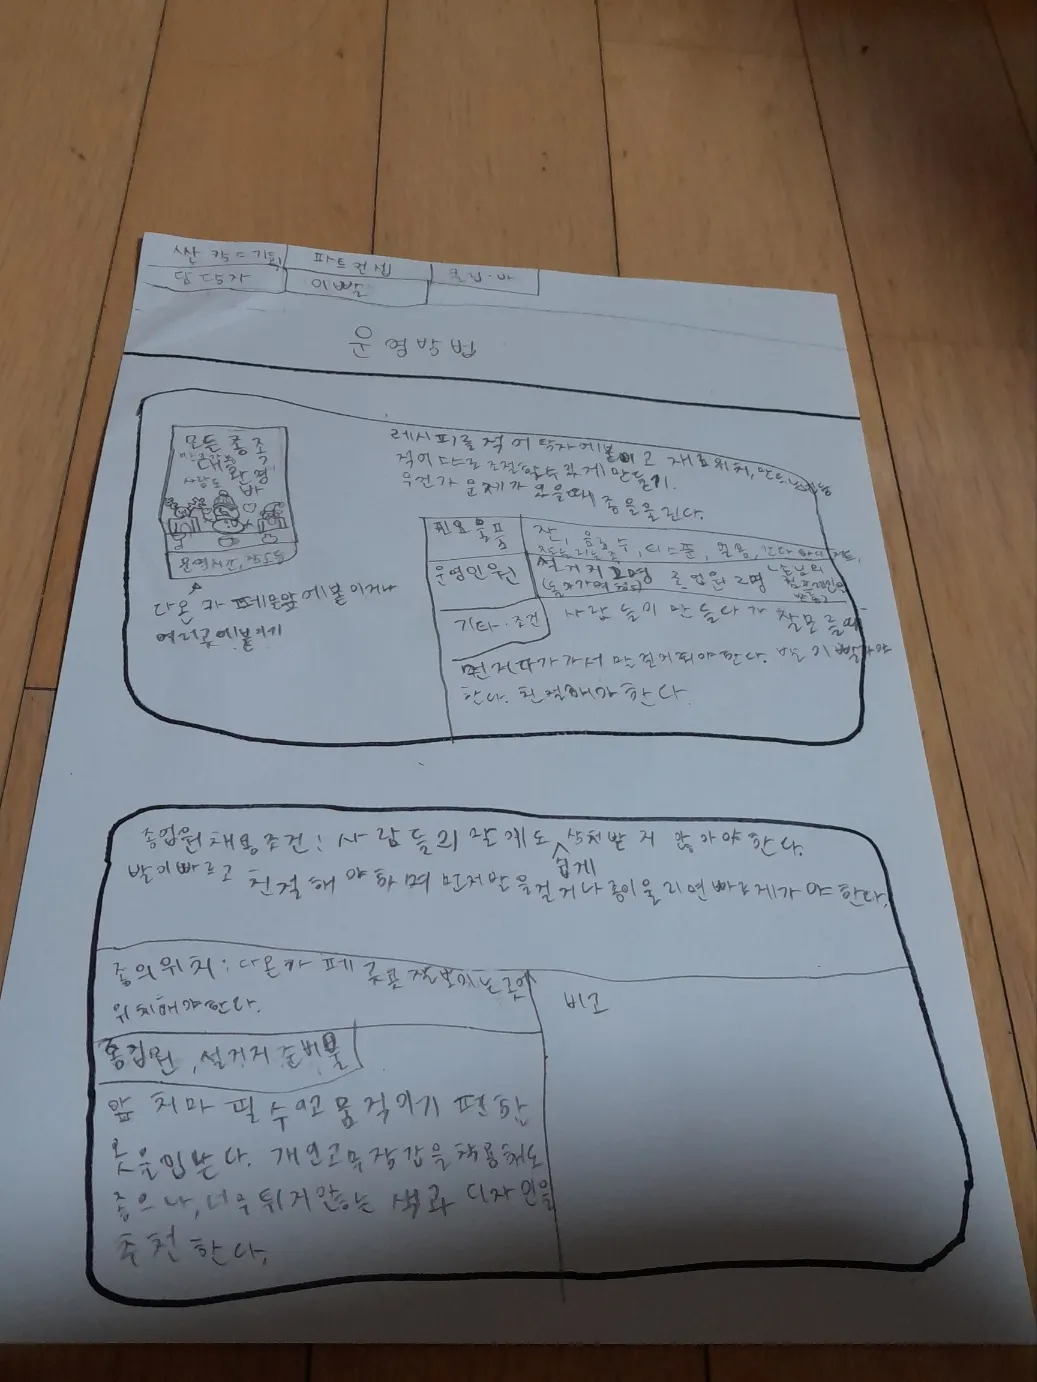 파트컨셉
담당자
이빨
운영방법
모든 종족
대환영
사람도
바
운영시간,
레시피를 적어 탁자에 붙이고 재료위치, 만드는
적이 스스로 조절할수 있게 만들기.
무언가 문제가 있을때 종을 울린다.
필요물품
잔, 음료수, 티스푼, 얼음,
운영인원
설거지 2명 종업원 2명 손님의
다온 카페 문앞에 붙이거나
여러곳에 붙이기
기타·조건
사람들이 만들다가 잘모를때
먼저 다가가서 말 걸어줘야한다. 발이 빨라야
한다. 친절해야한다.
종업원 채용조건: 사람들의 말에도 쉽게 상처받지 않아야한다.
발이빠르고 친절해야하며 먼저말을걸거나 종이울리면 빠르게가야한다.
종의위치: 다온카페 곳곳 잘보이는곳에
위치해야한다.
비고
종업원, 설거지 준비물
앞치마 필수이고 움직이기 편한
옷을입는다. 개인고무장갑을 착용해도
좋으나, 너무 튀지않는 색과 디자인을
추천한다.